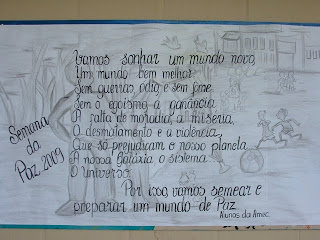 Vamos sonhar um mundo novo,
Um mundo bem melhor
Sem guerras, odio e sem fome
Sem o egoísmo, a ganância
A falta de moradia, a miséria,
O desmatamento e a violência,
Que só prejudicam o nosso planeta
A nossa Galáxia o sistema
O universo.
Por isso, vamos semear e
preparar um mundo de Paz.
Alunos da Amec
Semana
da
Paz 2009